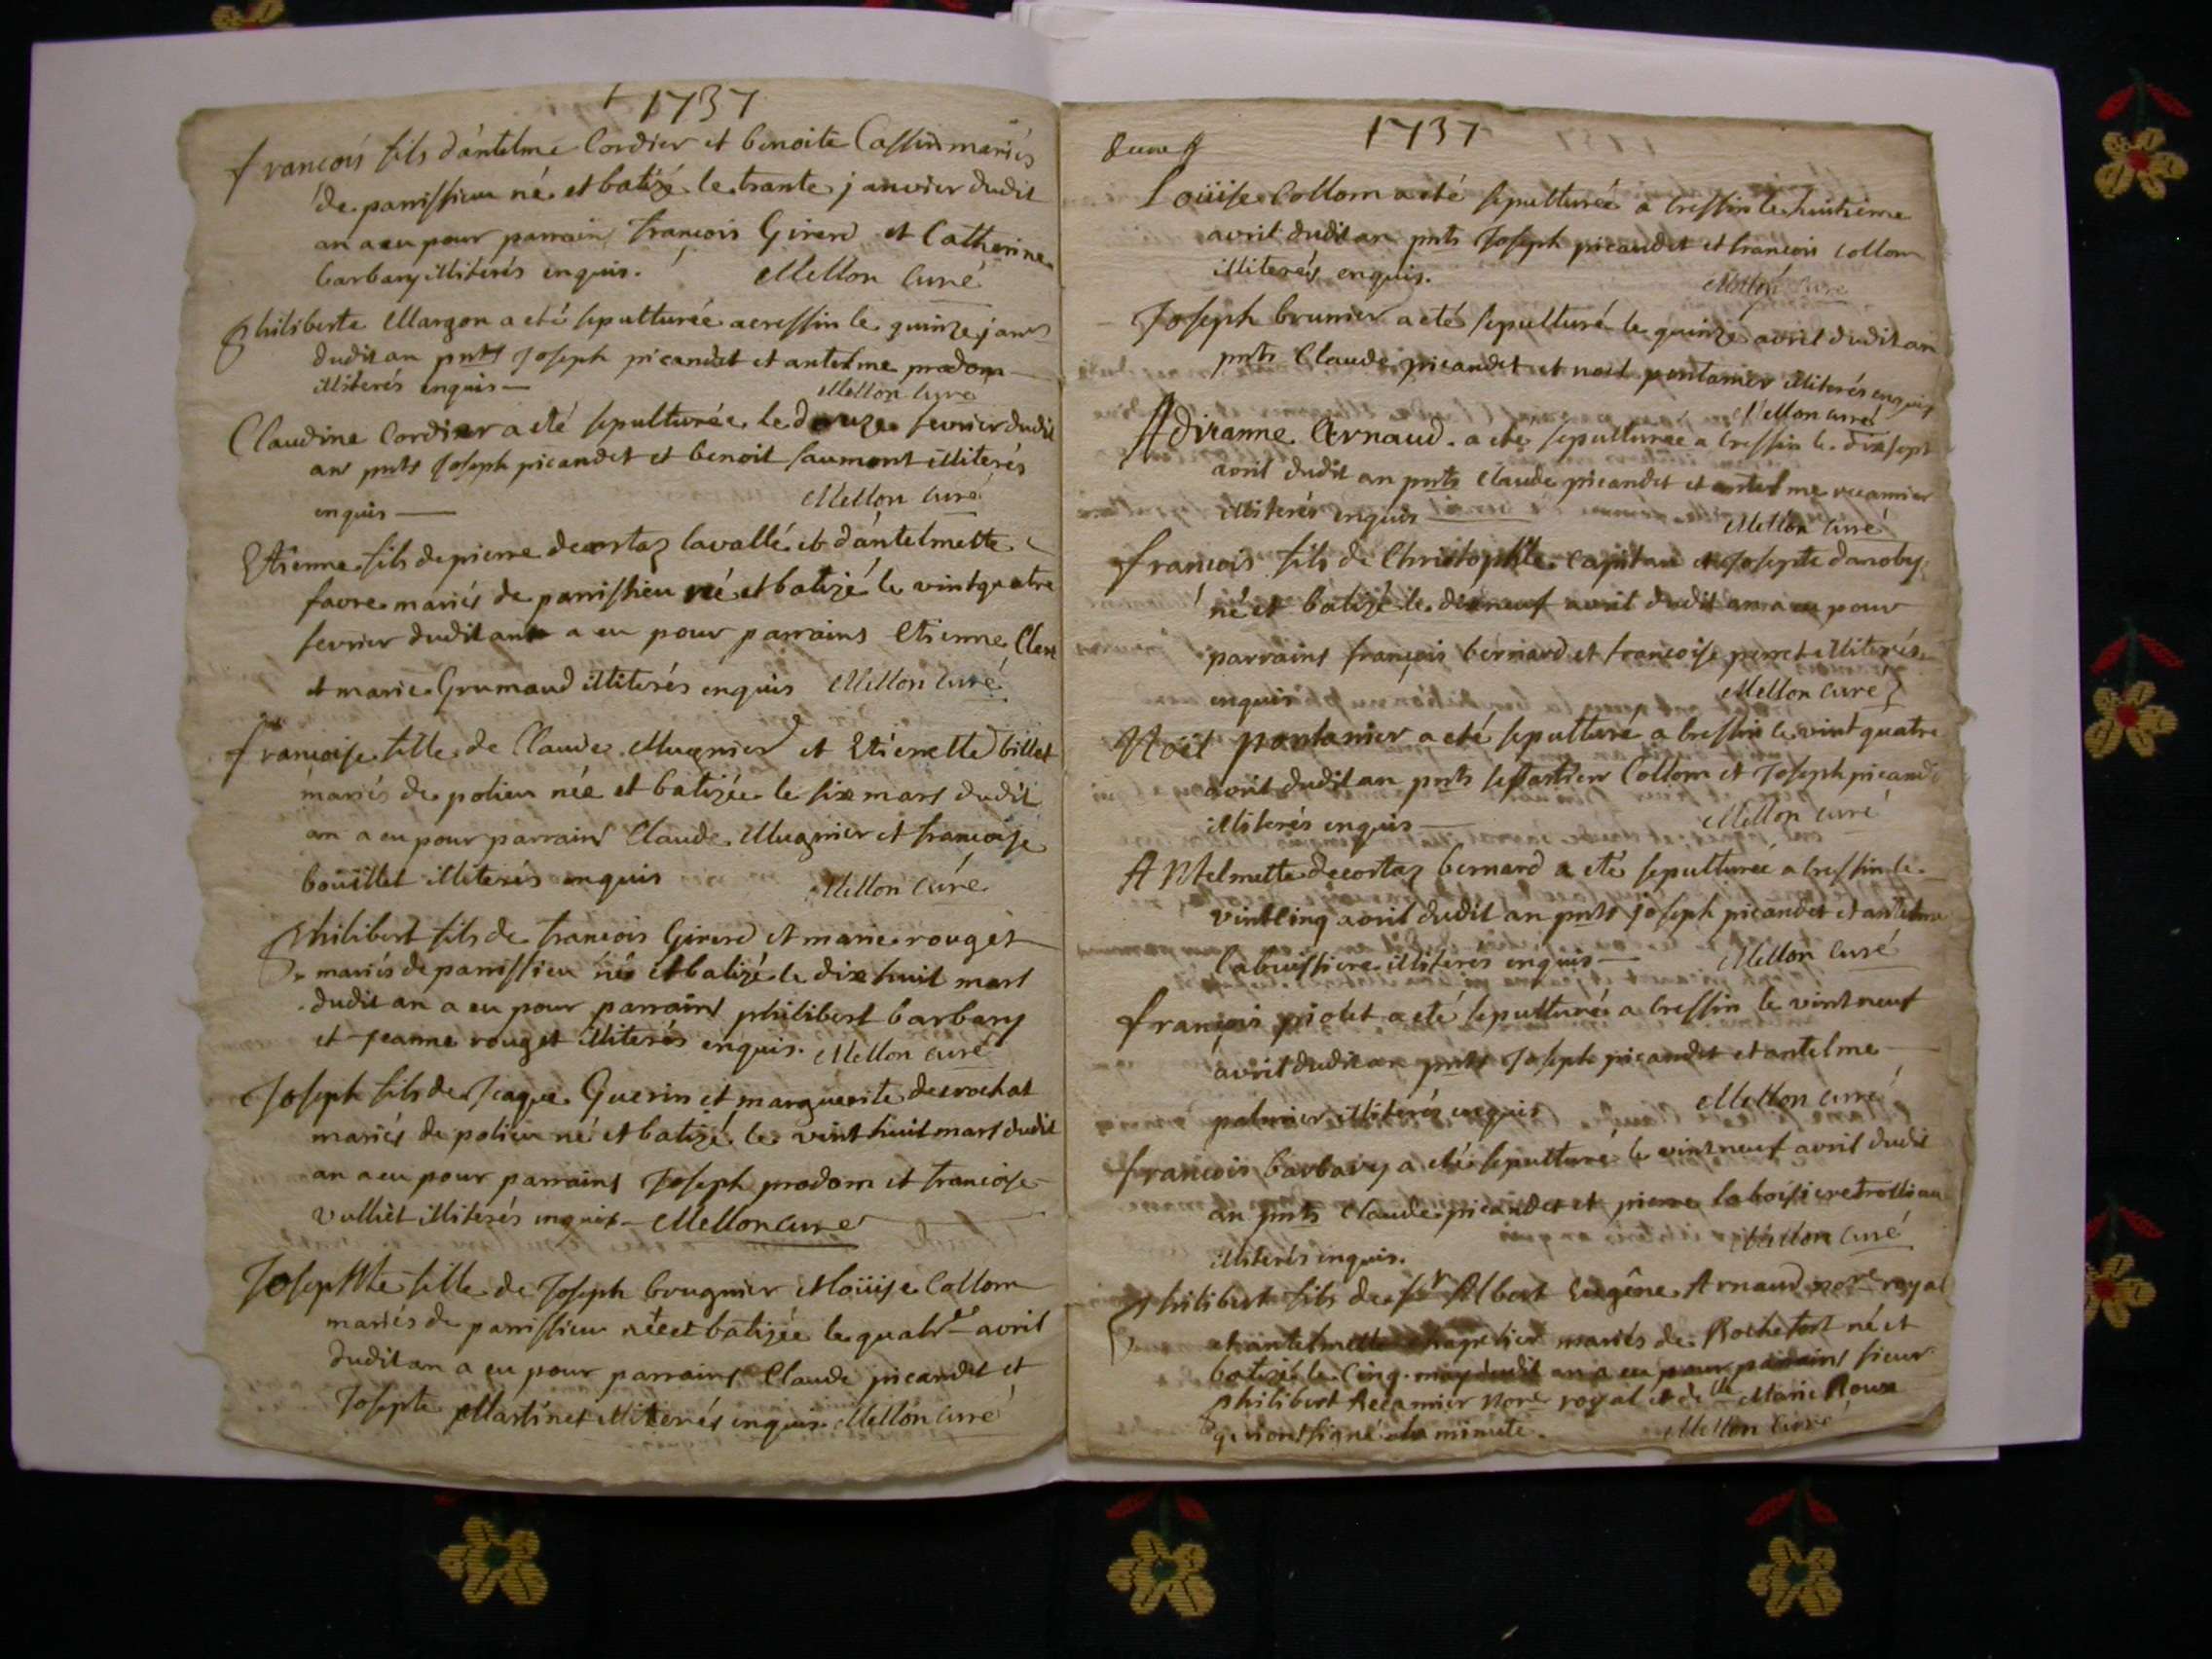 1737
francois fils d'antelme Cordier et benoite Cassin mariés
de parrissieu né et batizé le trante janvier dudit
an a eu pour parrain francois Girerd et Catherine
barbary illiterés enquis. Mellon Curé
philiberte Margon a eté sepulturée a cressin le quinze janr
dudit an pnts Joseph picandet et antelme prodom
illiterés enquis Mellon Curé
Claudine Cordier a eté sepulturée le douze fevrier dudit
an pnts Joseph picandet et benoit saumont illiterés
enquis Mellon Curé
Etienne fils de pierre decortaz lavallé et d'antelmette
favre mariés de parrissieu né et batizé le vintquatre
fevrier dudit an a eu pour parrains Etienne Clere
et marie Grumaud illiterés enquis Mellon Curé
francoise fille de Claude Mugnier et Etienette billet
mariés de polieu née et batizée le six mars dudit
an a eu pour parrains Claude Mugnier et francoise
boüillet illiterés enquis Mellon Curé
philibert fils de francois Girerd et marie rouget
mariés de parrissieu né et batizé le dix huit mars
dudit an a eu pour parrains philibert barbary
et jeanne rouget illiterés enquis. Mellon curé
Joseph fils de Jeaque Guerin et marguerite decrochat
mariés de polieu né et batizé le vint huit mars dudit
an a eu pour parrains Joseph prodom et francoise
vulliet illiterés enquis Mellon Curé
Josephte fille de Joseph bougnier et loüise Collom
mariés de parrissieu née et batizée le quatre avril
dudit an a eu pour parrains Claude picandet et
Josepte Martinet illiterés enquis Mellon Curé
1737
Loüise Collom a eté sepulturée a Cressin le huitieme
avril dudit an pnts Joseph picandet et francois collom
illiterés enquis. Mellon Curé
Joseph brunier a eté sepulturé le quinze avril dudit an
pnts Claude picandet et noel pontanier illiterés enquis
Mellon curé
Adrianne Arnaud a eté sepulturée a Cressin le dix sept
avril dudit an pnts Claude picandet et antelme recamier
illiterés enquis Mellon Curé
francois fils de Christophle Capitan et Josepte danoby
né et batizé le dixneuf avril dudit an a eu pour
parrains françois bernard et francoise perret illiterés
enquis Mellon Curé
Noël pontanier a eté sepulturé a Cressin le vint quatre
avril dudit an pnts sebastien Collom et Joseph picandet
illiterés enquis Mellon Curé
Antelmette decortaz bernard a eté sepulturée a Cressin le
vintcinq avril dudit an pnts joseph picandet et antelme
Labuissiere illiterés enquis Mellon Curé
françois piolet a eté sepulturé a Cressin le vint neuf
avril dudit an pnts Joseph picandet et antelme
palmier illiterés enquis Mellon curé
francois barbary a eté sepulturé le vint neuf avril dudit
an pnts Claude picandet et pierre laboisiere
illiterés enquis. Mellon Curé
philibert fils de sr Albert Eugêne Arnaud nore royal
et antelmette mariés de Rochefort né et
batizé le Cinq may dudit an a eu pour parrains sieur
philibert Recamier nore royal et delle Marie Roux
qui ont signé a la minute. Mellon Curé